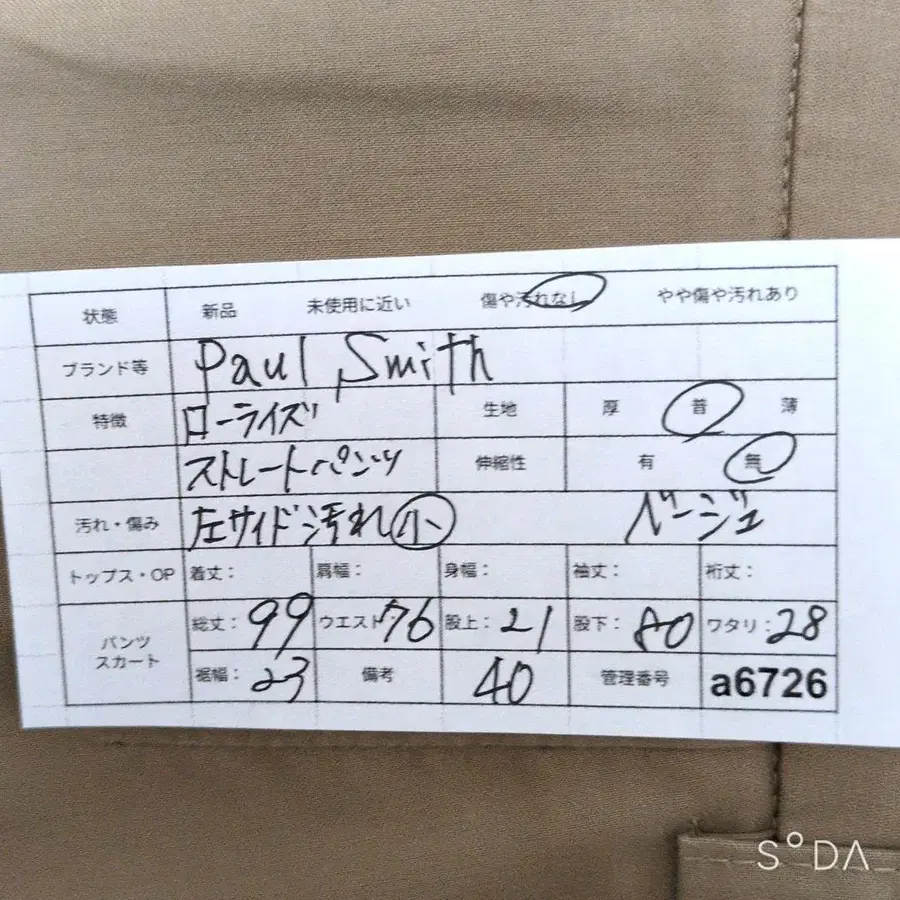 状態 新品 未使用に近い 傷や汚れなし やや傷や汚れあり
ブランド等 Paul Smith
特徴 ローライズ 生地 厚 普 薄
ストレートパンツ 伸縮性 有 無
汚れ・傷み 左サイド汚れ 小 ベージュ
トップス・OP 着丈: 肩幅: 身幅: 袖丈: 裄丈:
パンツ スカート 総丈:99 ウエスト76 股上:21 股下:80 ワタリ:28
裾幅:23 備考 40 管理番号 a6726
SODA